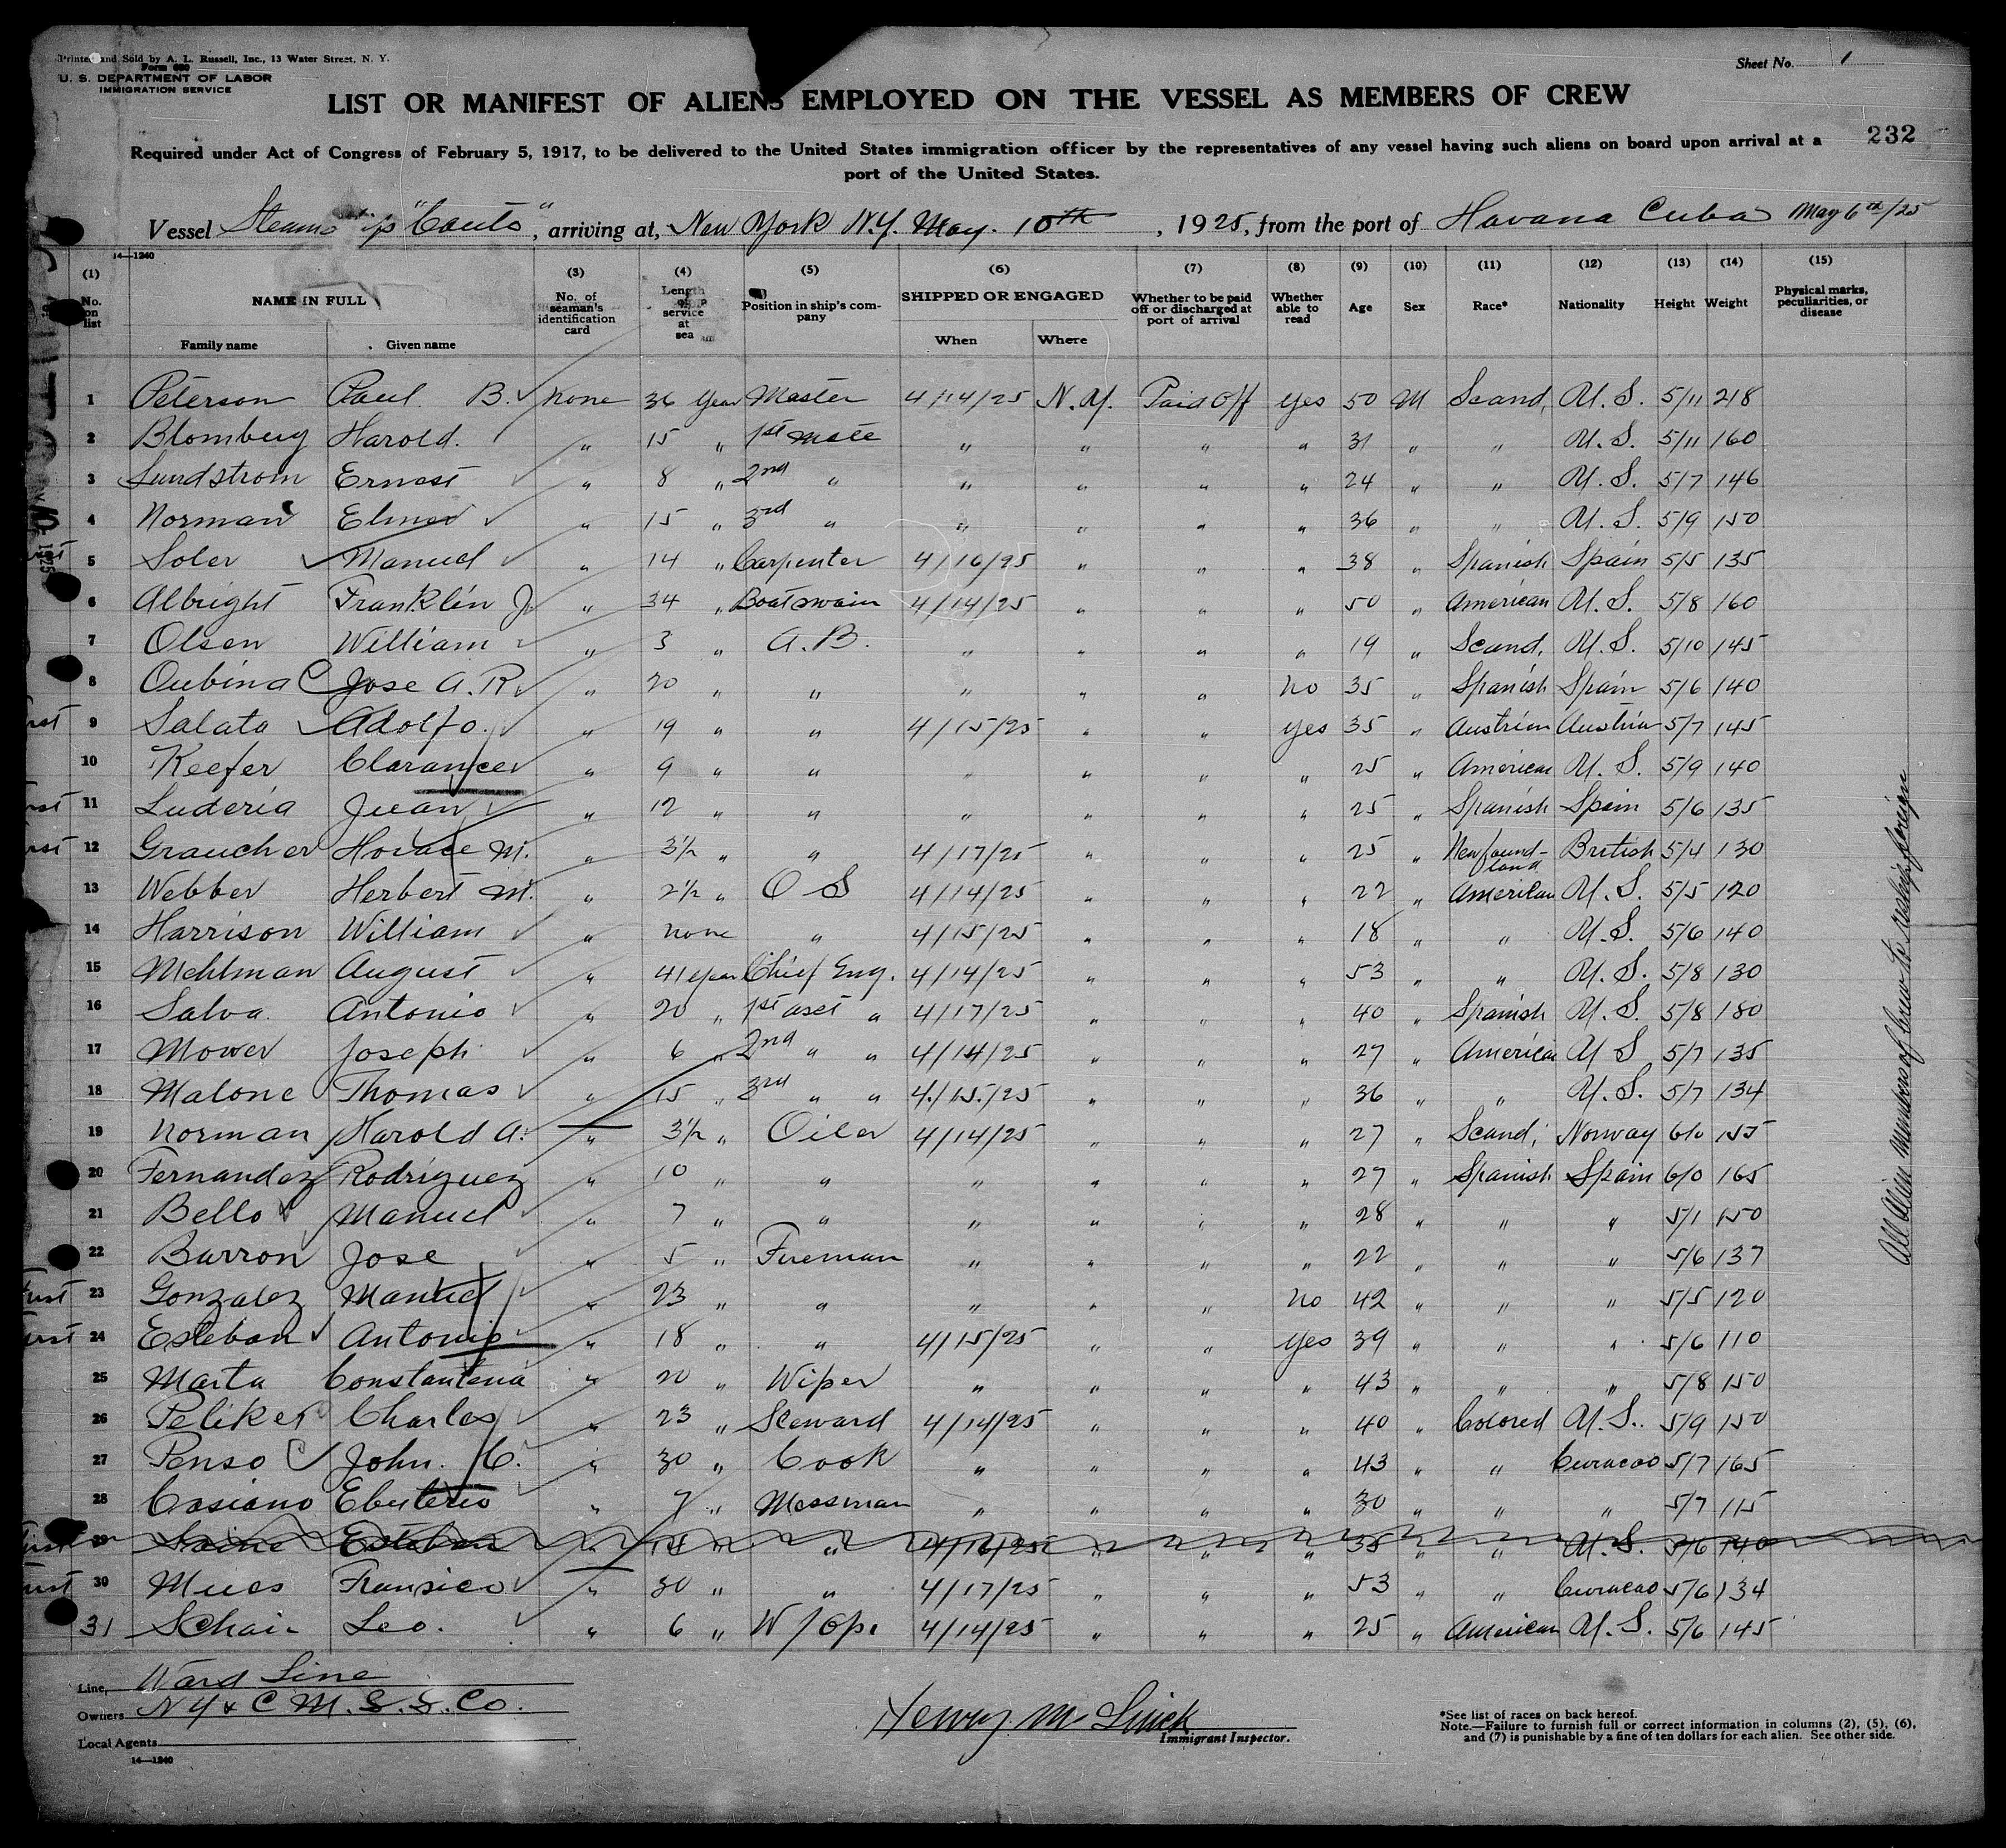 Printed and Sold by A. L. Russell, Inc., 13 Water Street, N. Y.
Form 680
U. S. DEPARTMENT OF LABOR
IMMIGRATION SERVICE
Sheet No. 1
LIST OR MANIFEST OF ALIENS EMPLOYED ON THE VESSEL AS MEMBERS OF CREW
232
Required under Act of Congress of February 5, 1917, to be delivered to the United States immigration officer by the representatives of any vessel having such aliens on board upon arrival at a
port of the United States.
Vessel Steamship "Cauto", arriving at, New York N.Y. May. 10th, 1925, from the port of Havana Cuba May 6th/25
14—1240
(1) (3) (4) (5) (6) (7) (8) (9) (10) (11) (12) (13) (14) (15)
No. on list NAME IN FULL No. of seaman's identification card Length of service at sea Position in ship's company SHIPPED OR ENGAGED Whether to be paid off or discharged at port of arrival Whether able to read Age Sex Race* Nationality Height Weight Physical marks, peculiarities, or disease
Family name Given name When Where
1 Peterson Paul B. None 36 Year Master 4/14/25 N.Y. Paid Off yes 50 M Scand. U.S. 5/11 218
2 Blomberg Harold. " 15 " 1st mate " " " " 31 " " U.S. 5/11 160
3 Lundstrom Ernest " 8 " 2nd " " " " " 24 " " U.S. 5/7 146
4 Norman Elmer " 15 " 3rd " " " " " 36 " " U.S. 5/9 150
5 Soler Manuel " 14 " Carpenter 4/16/25 " " " 38 " Spanish Spain 5/5 135
6 Albright Franklin J. " 34 " Boatswain 4/14/25 " " " 50 " American U.S. 5/8 160
7 Olsen William " 3 " A.B. " " " " 19 " Scand. U.S. 5/10 145
8 Oubina Jose A. R. " 20 " " " " " no 35 " Spanish Spain 5/6 140
9 Salata Adolfo. " 19 " " 4/15/25 " " yes 35 " Austrian Austria 5/7 145
10 Keefer Clarance " 9 " " " " " " 25 " American U.S. 5/9 140
11 Luderia Juan " 12 " " " " " " 25 " Spanish Spain 5/6 135
12 Graucher Horace M. " 3½ " " 4/17/25 " " " 25 " Newfound-land British 5/4 130
13 Webber Herbert M. " 2½ " O S 4/14/25 " " " 22 " American U.S. 5/5 120
14 Harrison William " none " 4/15/25 " " " 18 " " U.S. 5/6 140
15 Mehlman August " 41 year Chief Eng. 4/14/25 " " " 53 " " U.S. 5/8 130
16 Salva Antonio " 20 " 1st asst " 4/17/25 " " " 40 " Spanish U.S. 5/8 180
17 Mower Joseph " 6 " 2nd " " 4/14/25 " " " 27 " American U S 5/7 135
18 Malone Thomas " 15 " 3rd " " 4/15/25 " " " 36 " " U.S. 5/7 134
19 Norman Harold A. " 3½ " Oiler 4/14/25 " " " 27 " Scand. Norway 6/0 155
20 Fernandez Rodriguez " 10 " " " " " " 27 " Spanish Spain 6/0 165
21 Bello Manuel " 7 " " " " " " 28 " " " 5/1 150
22 Barron Jose " 5 " Fireman " " " " 22 " " " 5/6 137
23 Gonzalez Manuel " 23 " " " " " no 42 " " " 5/5 120
24 Esteban Antonio " 18 " " 4/15/25 " " yes 39 " " " 5/6 110
25 Marta Constantena " 20 " Wiper " " " " 43 " " " 5/8 150
26 Peliker Charles " 23 " Steward 4/14/25 " " " 40 " Colored U.S. 5/9 150
27 Penso John. C. " 30 " Cook " " " " 43 " " Curacao 5/7 165
28 Casiano Ebuterio " 7 " Messman " " " " 30 " " " 5/7 115
29 Esteban " " " 4/16/25 " " " 35 " " U.S. 5/6 140
30 Mues Fransico " 30 " " 4/17/25 " " " 53 " " Curacao 5/6 134
31 Schair Leo. " 6 " W/Opr. 4/14/25 " " " 25 " American U.S. 5/6 145
All Alien members of Crew to reship foreign
Line, Ward Line
Owners N Y & C M. S. S. Co.
Local Agents
14—1240
Henry M
Immigrant Inspector.
*See list of races on back hereof.
Note.—Failure to furnish full or correct information in columns (2), (5), (6),
and (7) is punishable by a fine of ten dollars for each alien. See other side.